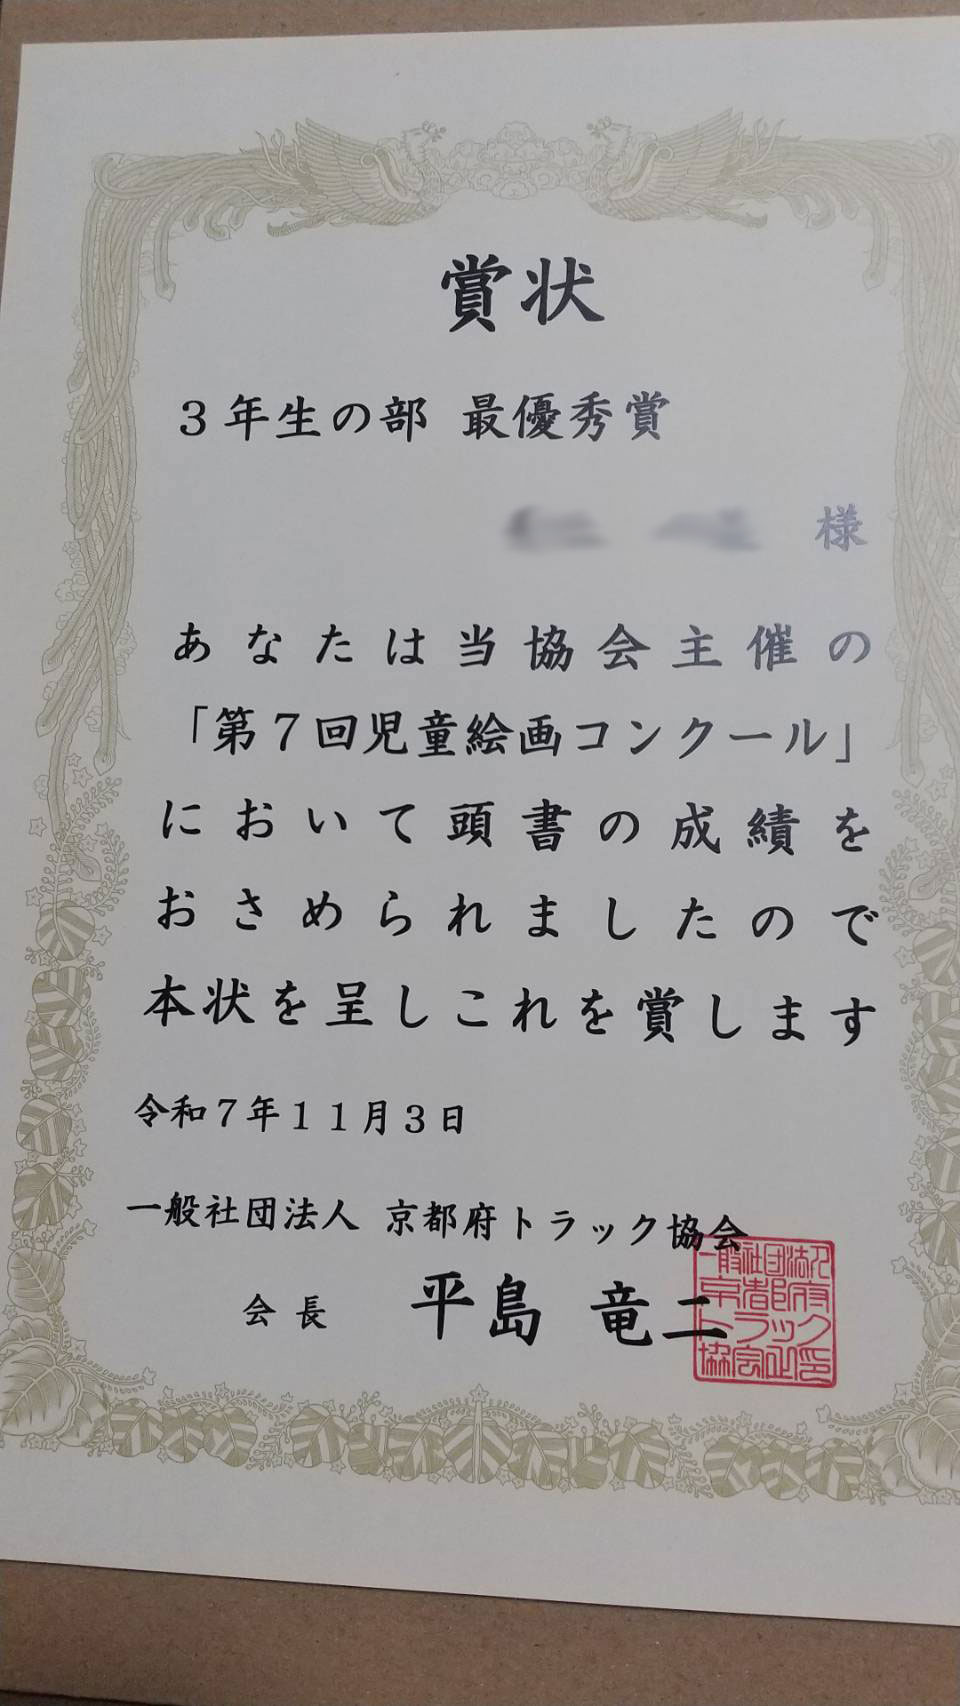 賞状
３年生の部 最優秀賞
様
あなたは当協会主催の
「第７回児童絵画コンクール」
において頭書の成績を
おさめられましたので
本状を呈しこれを賞します
令和７年１１月３日
一般社団法人 京都府トラック協会
会長 平島 竜二
一般社団法人
京都府
トラック
協会正印